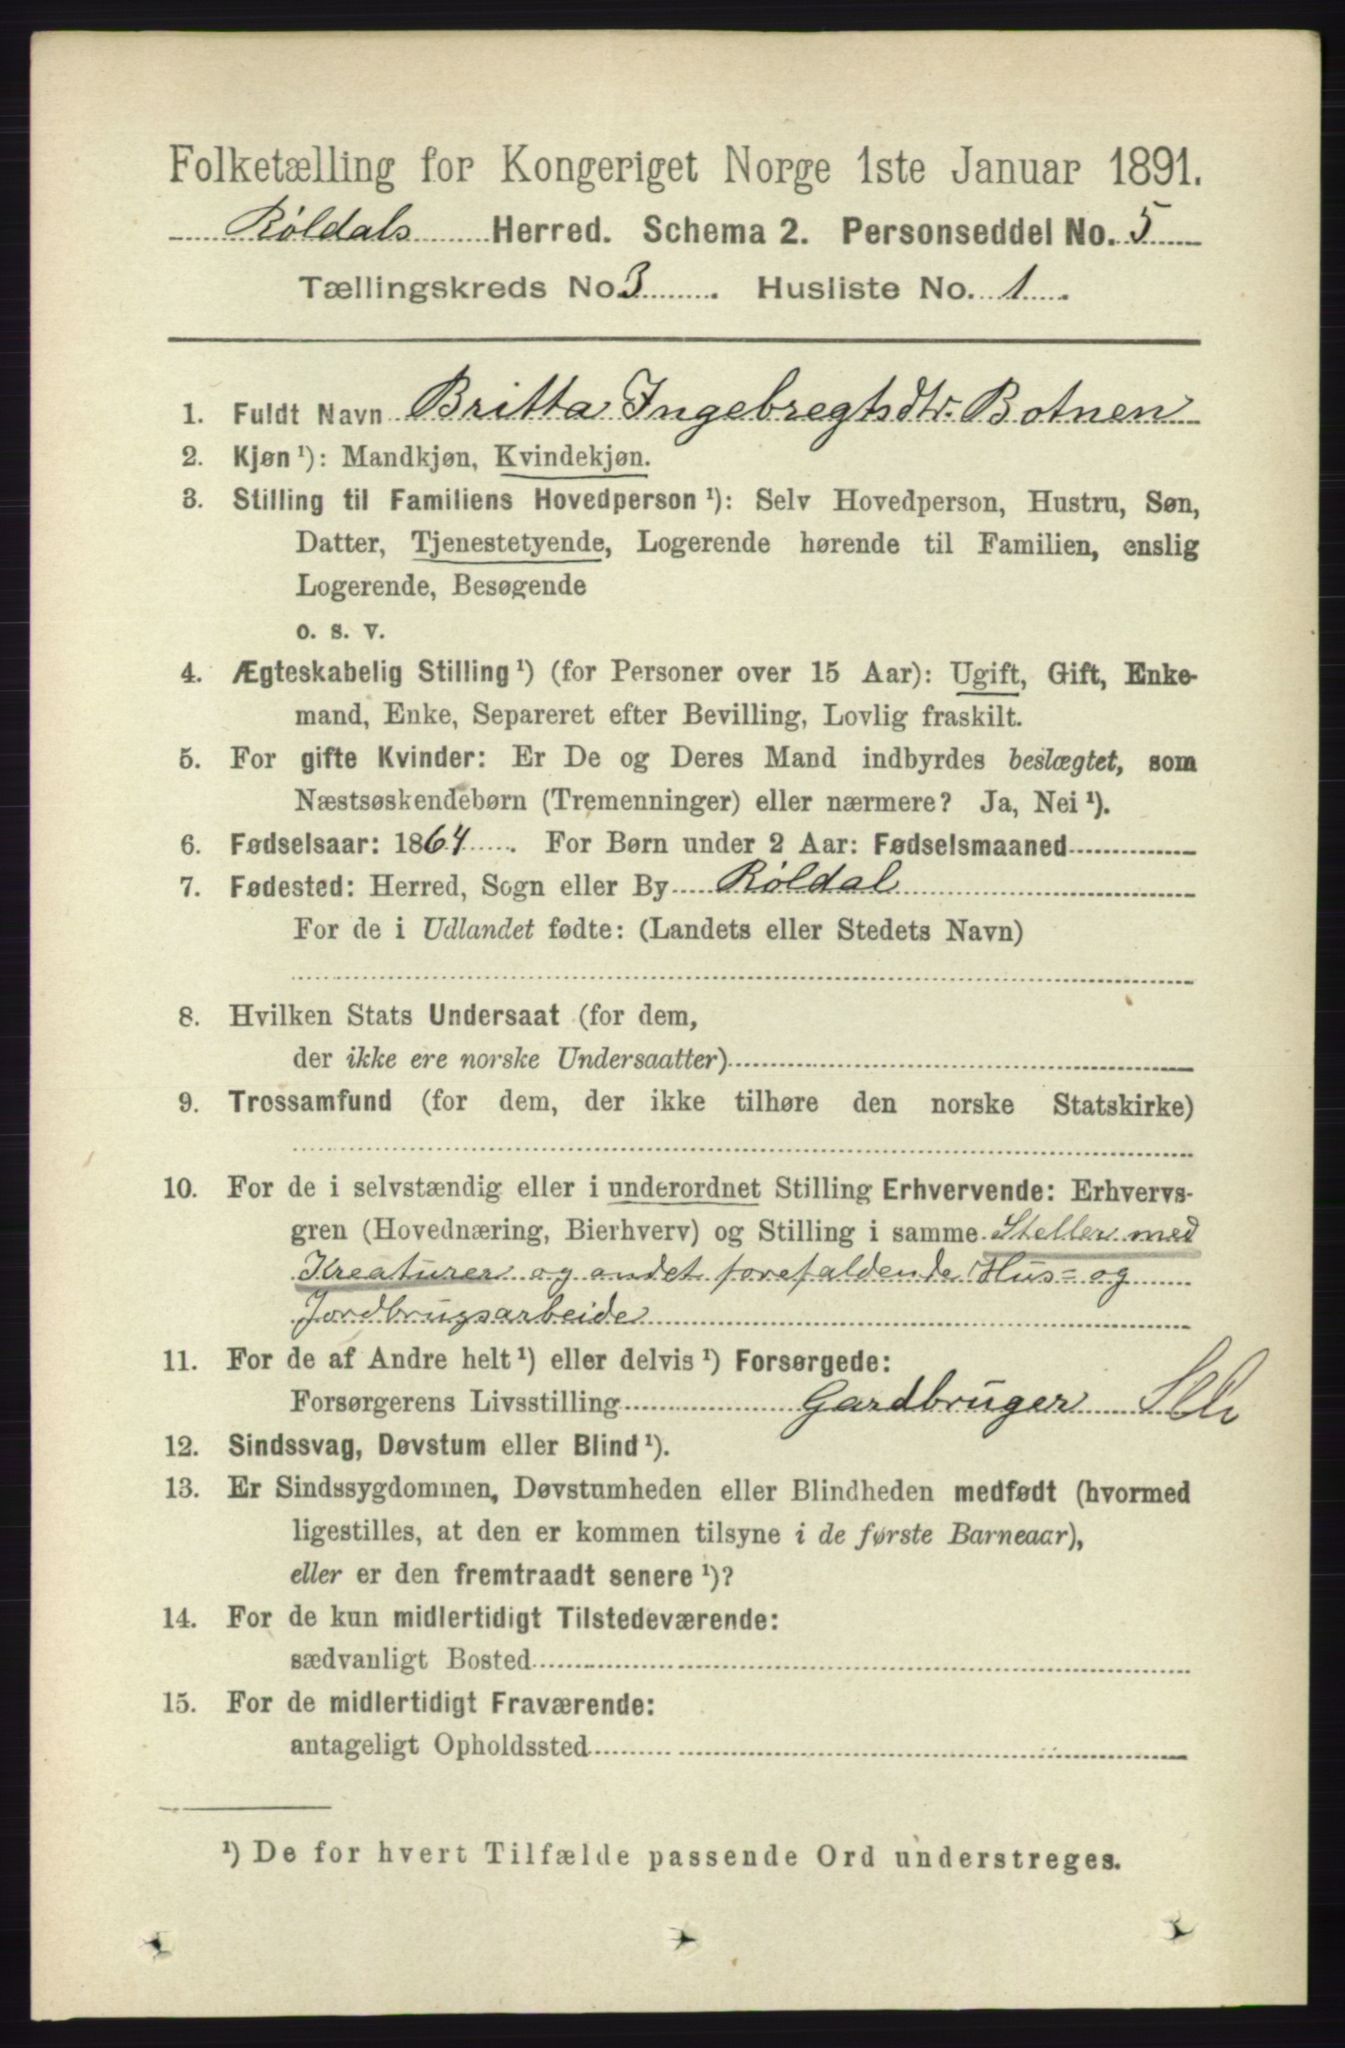 Folketælling for Kongeriget Norge 1ste Januar 1891.
Røldals Herred. Schema 2. Personseddel No. 5
Tællingskreds No. 3. Husliste No. 1.
1. Fuldt Navn Britta Ingebregtsdtr. Botnen
2. Kjøn ¹): Mandkjøn, Kvindekjøn.
3. Stilling til Familiens Hovedperson ¹): Selv Hovedperson, Hustru, Søn,
Datter, Tjenestetyende, Logerende hørende til Familien, enslig
Logerende, Besøgende
o. s. v.
4. Ægteskabelig Stilling ¹) (for Personer over 15 Aar): Ugift, Gift, Enke-
mand, Enke, Separeret efter Bevilling, Lovlig fraskilt.
5. For gifte Kvinder: Er De og Deres Mand indbyrdes beslægtet, som
Næstsøskendebørn (Tremenninger) eller nærmere? Ja, Nei ¹).
6. Fødselsaar: 1864. For Børn under 2 Aar: Fødselsmaaned
7. Fødested: Herred, Sogn eller By Røldal
For de i Udlandet fødte: (Landets eller Stedets Navn)
8. Hvilken Stats Undersaat (for dem,
der ikke ere norske Undersaatter)
9. Trossamfund (for dem, der ikke tilhøre den norske Statskirke)
10. For de i selvstændig eller i underordnet Stilling Erhvervende: Erhvervs-
gren (Hovednæring, Bierhverv) og Stilling i samme Steller med
Kreaturer og andet forefaldende Hus- og
Jordbrugsarbeide
11. For de af Andre helt ¹) eller delvis ¹) Forsørgede:
Forsørgerens Livsstilling Gardbruger
12. Sindssvag, Døvstum eller Blind ¹).
13. Er Sindssygdommen, Døvstumheden eller Blindheden medfødt (hvormed
ligestilles, at den er kommen tilsyne i de første Barneaar),
eller er den fremtraadt senere ¹)?
14. For de kun midlertidigt Tilstedeværende:
sædvanligt Bosted
15. For de midlertidigt Fraværende:
antageligt Opholdssted
¹) De for hvert Tilfælde passende Ord understreges.